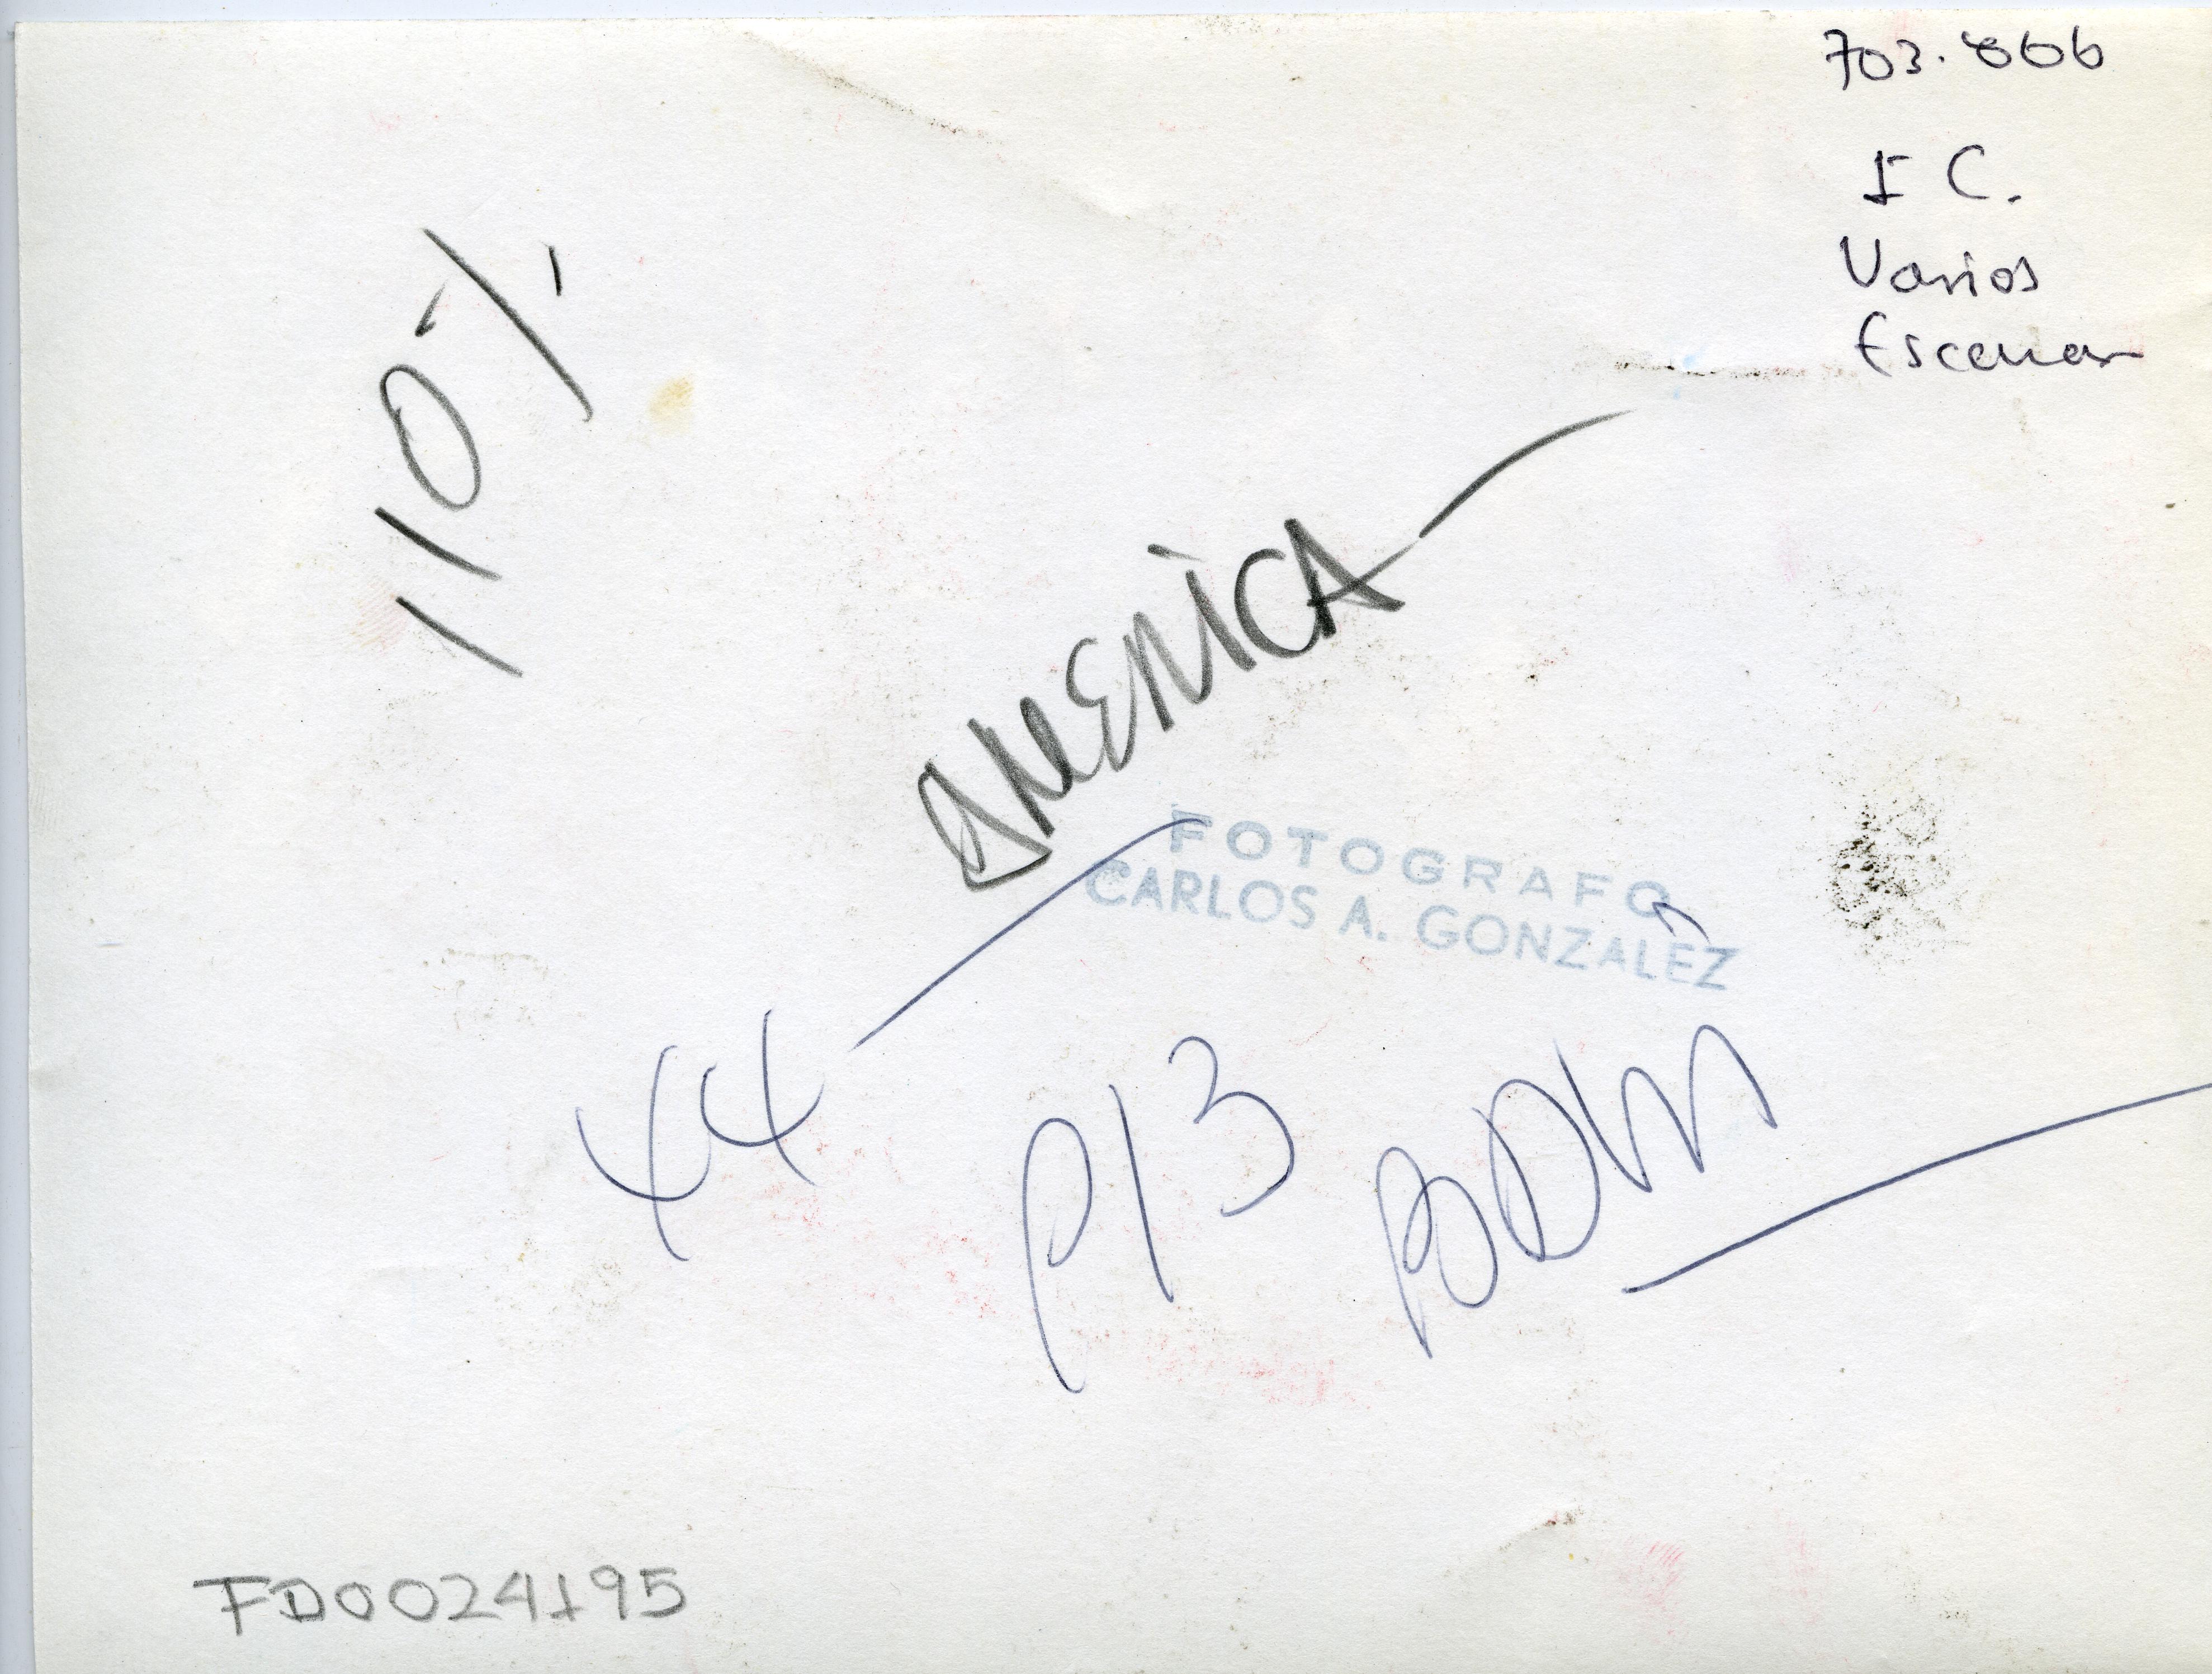 703.806
I C.
Varios
Escenas
110%
AMERICA
FOTOGRAFO
CARLOS A. GONZALEZ
44
P13
FD0024195